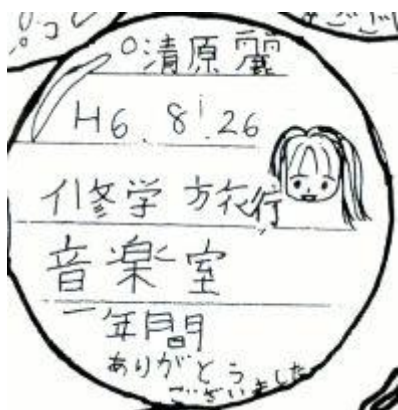 清原麗
H6.8.26
修学旅行
音楽室
一年間
ありがとう
ございました